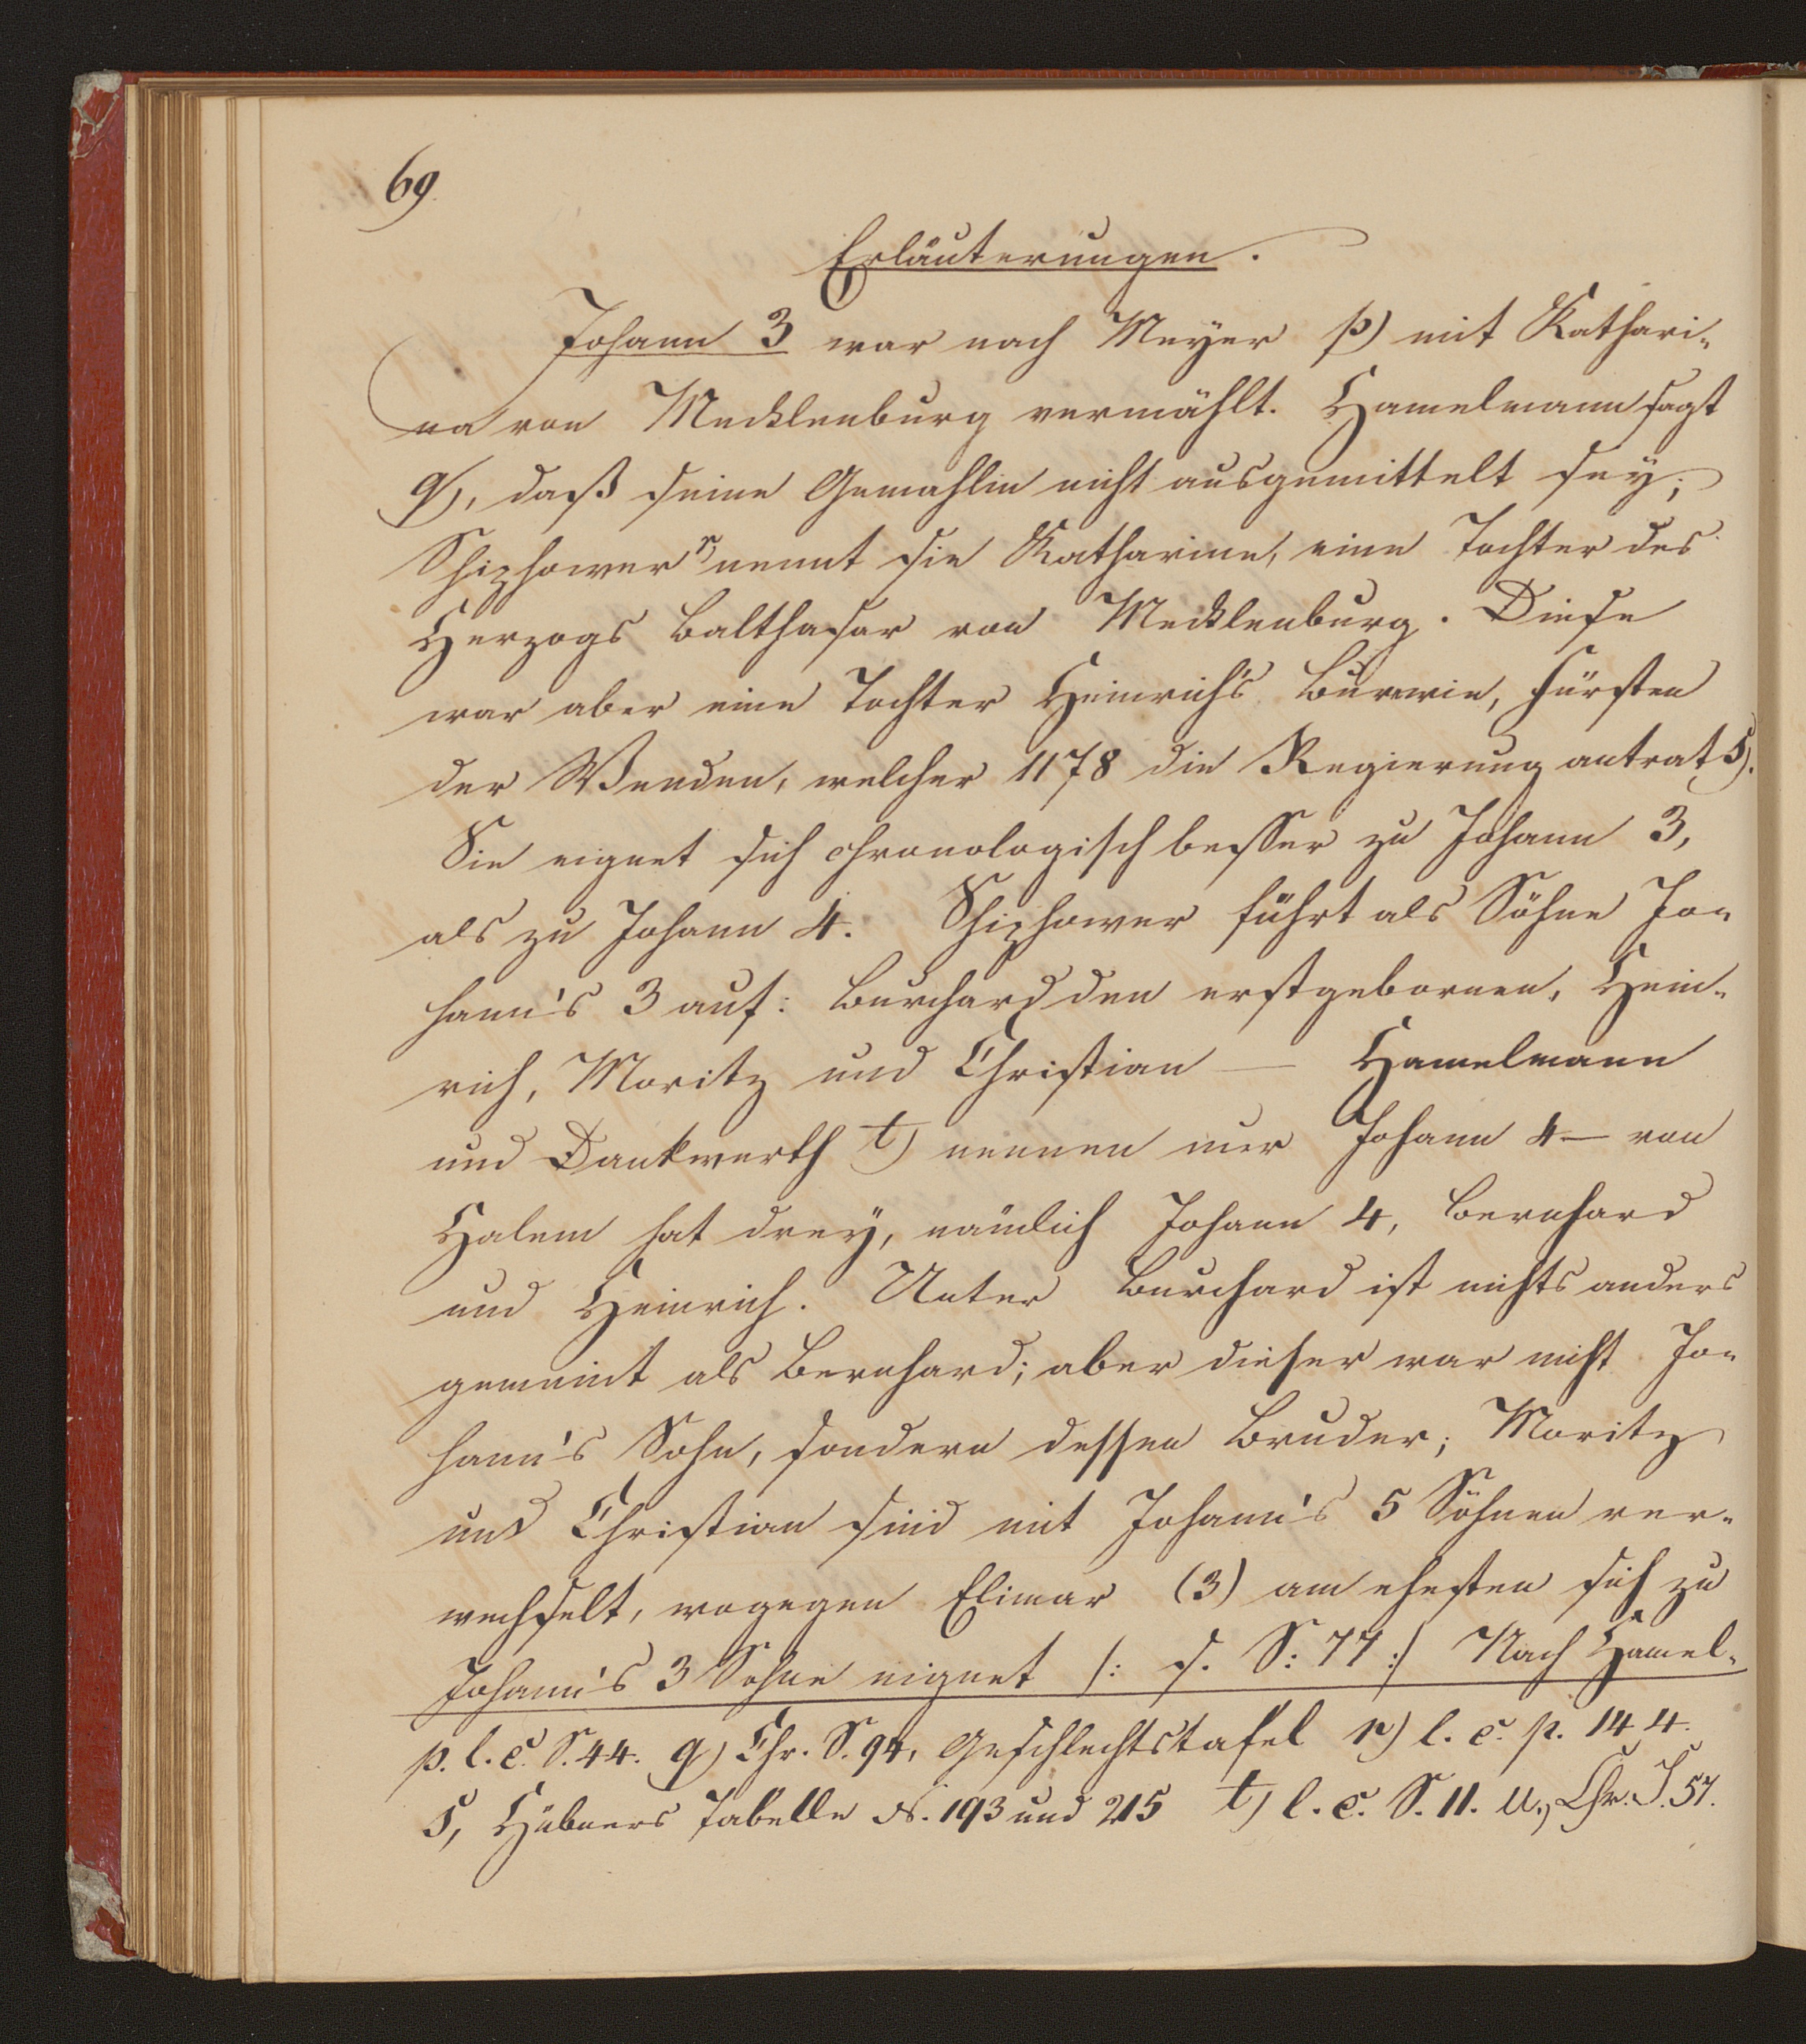 69.
Erläuterungen.
Johann 3 war nach Meyer p) mit Kathari-
na von Mecklenburg vermählt. Hamelmann sagt
q), daß seine Gemahlin nicht ausgemittelt sey;
Schiphower r) nennt sie Katharine, eine Tochter des
Herzogs Balthasar von Mecklenburg. Diese
war aber eine Tochter Heinrich's Burwin, Fürsten
der Wenden, welcher 1178 die Regierung antrat s).
Sie eignet sich chronologisch besser zu Johann 3,
als zu Johann 4. Schiphower führt als Söhne Jo-
hann's 3 auf: Burchard den erstgebornen, Hein-
rich, Moritz und Christian — Hamelmann
und Dankwerth t) nennen nur Johann 4 — von
Halem hat drey, nämlich Johann 4, Bernhard
und Heinrich. Unter Burchard ist nichts anders
gemeint als Bernhard; aber dieser war nicht Jo-
hann's Sohn, sondern dessen Bruder; Moritz
und Christian sind mit Johann's 5 Söhnen ver-
wechselt, wogegen Elimar (3) am ehesten sich zu
Johann's 3 Sohne eignet /: s. S: 77 :/ Nach Hamel-
p. l. c. S. 44. q) Chr. S. 94, Geschlechtstafel r) l. c. p. 144.
s, Hübners Tabelle N. 193 und 215 t) l. c. S. 11. u., Chr. S. 57.